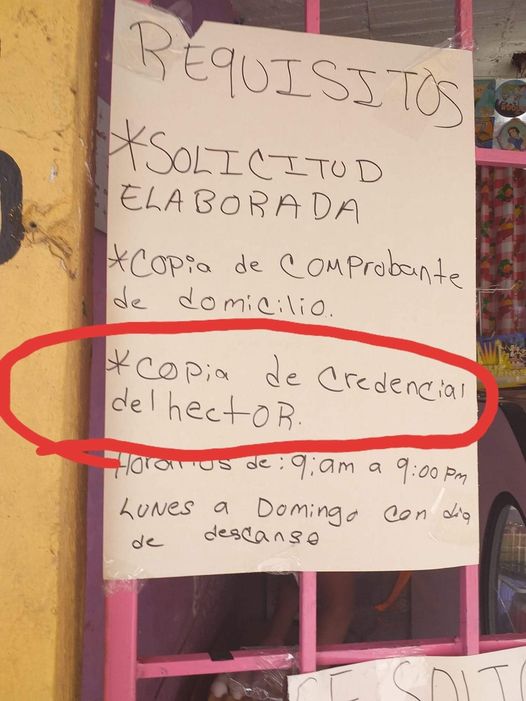 REQUISITOS
*SOLICITUD
ELABORADA
*COPia de COMProbante
de domicilio.
*COPia de Credencial
delhectoR.
Horarios de: 9:am a 9:00 Pm
LUNES a Domingo con dia
de descanso
SE SOLIC